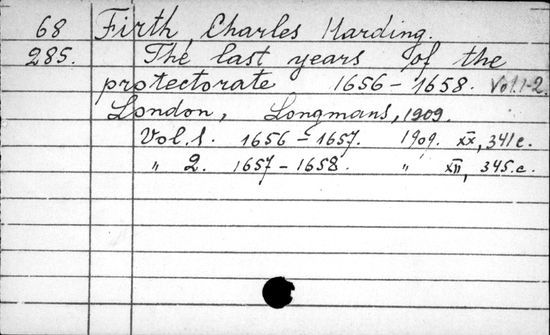 68 Firth, Charles Harding.
285. The last years of the
protectorate 1656-1658. Vol.1-2.
London, Longmans, 1909.
Vol.1. 1656-1657. 1909. xx, 341 c.
" 2. 1657-1658. " XII, 345.c.